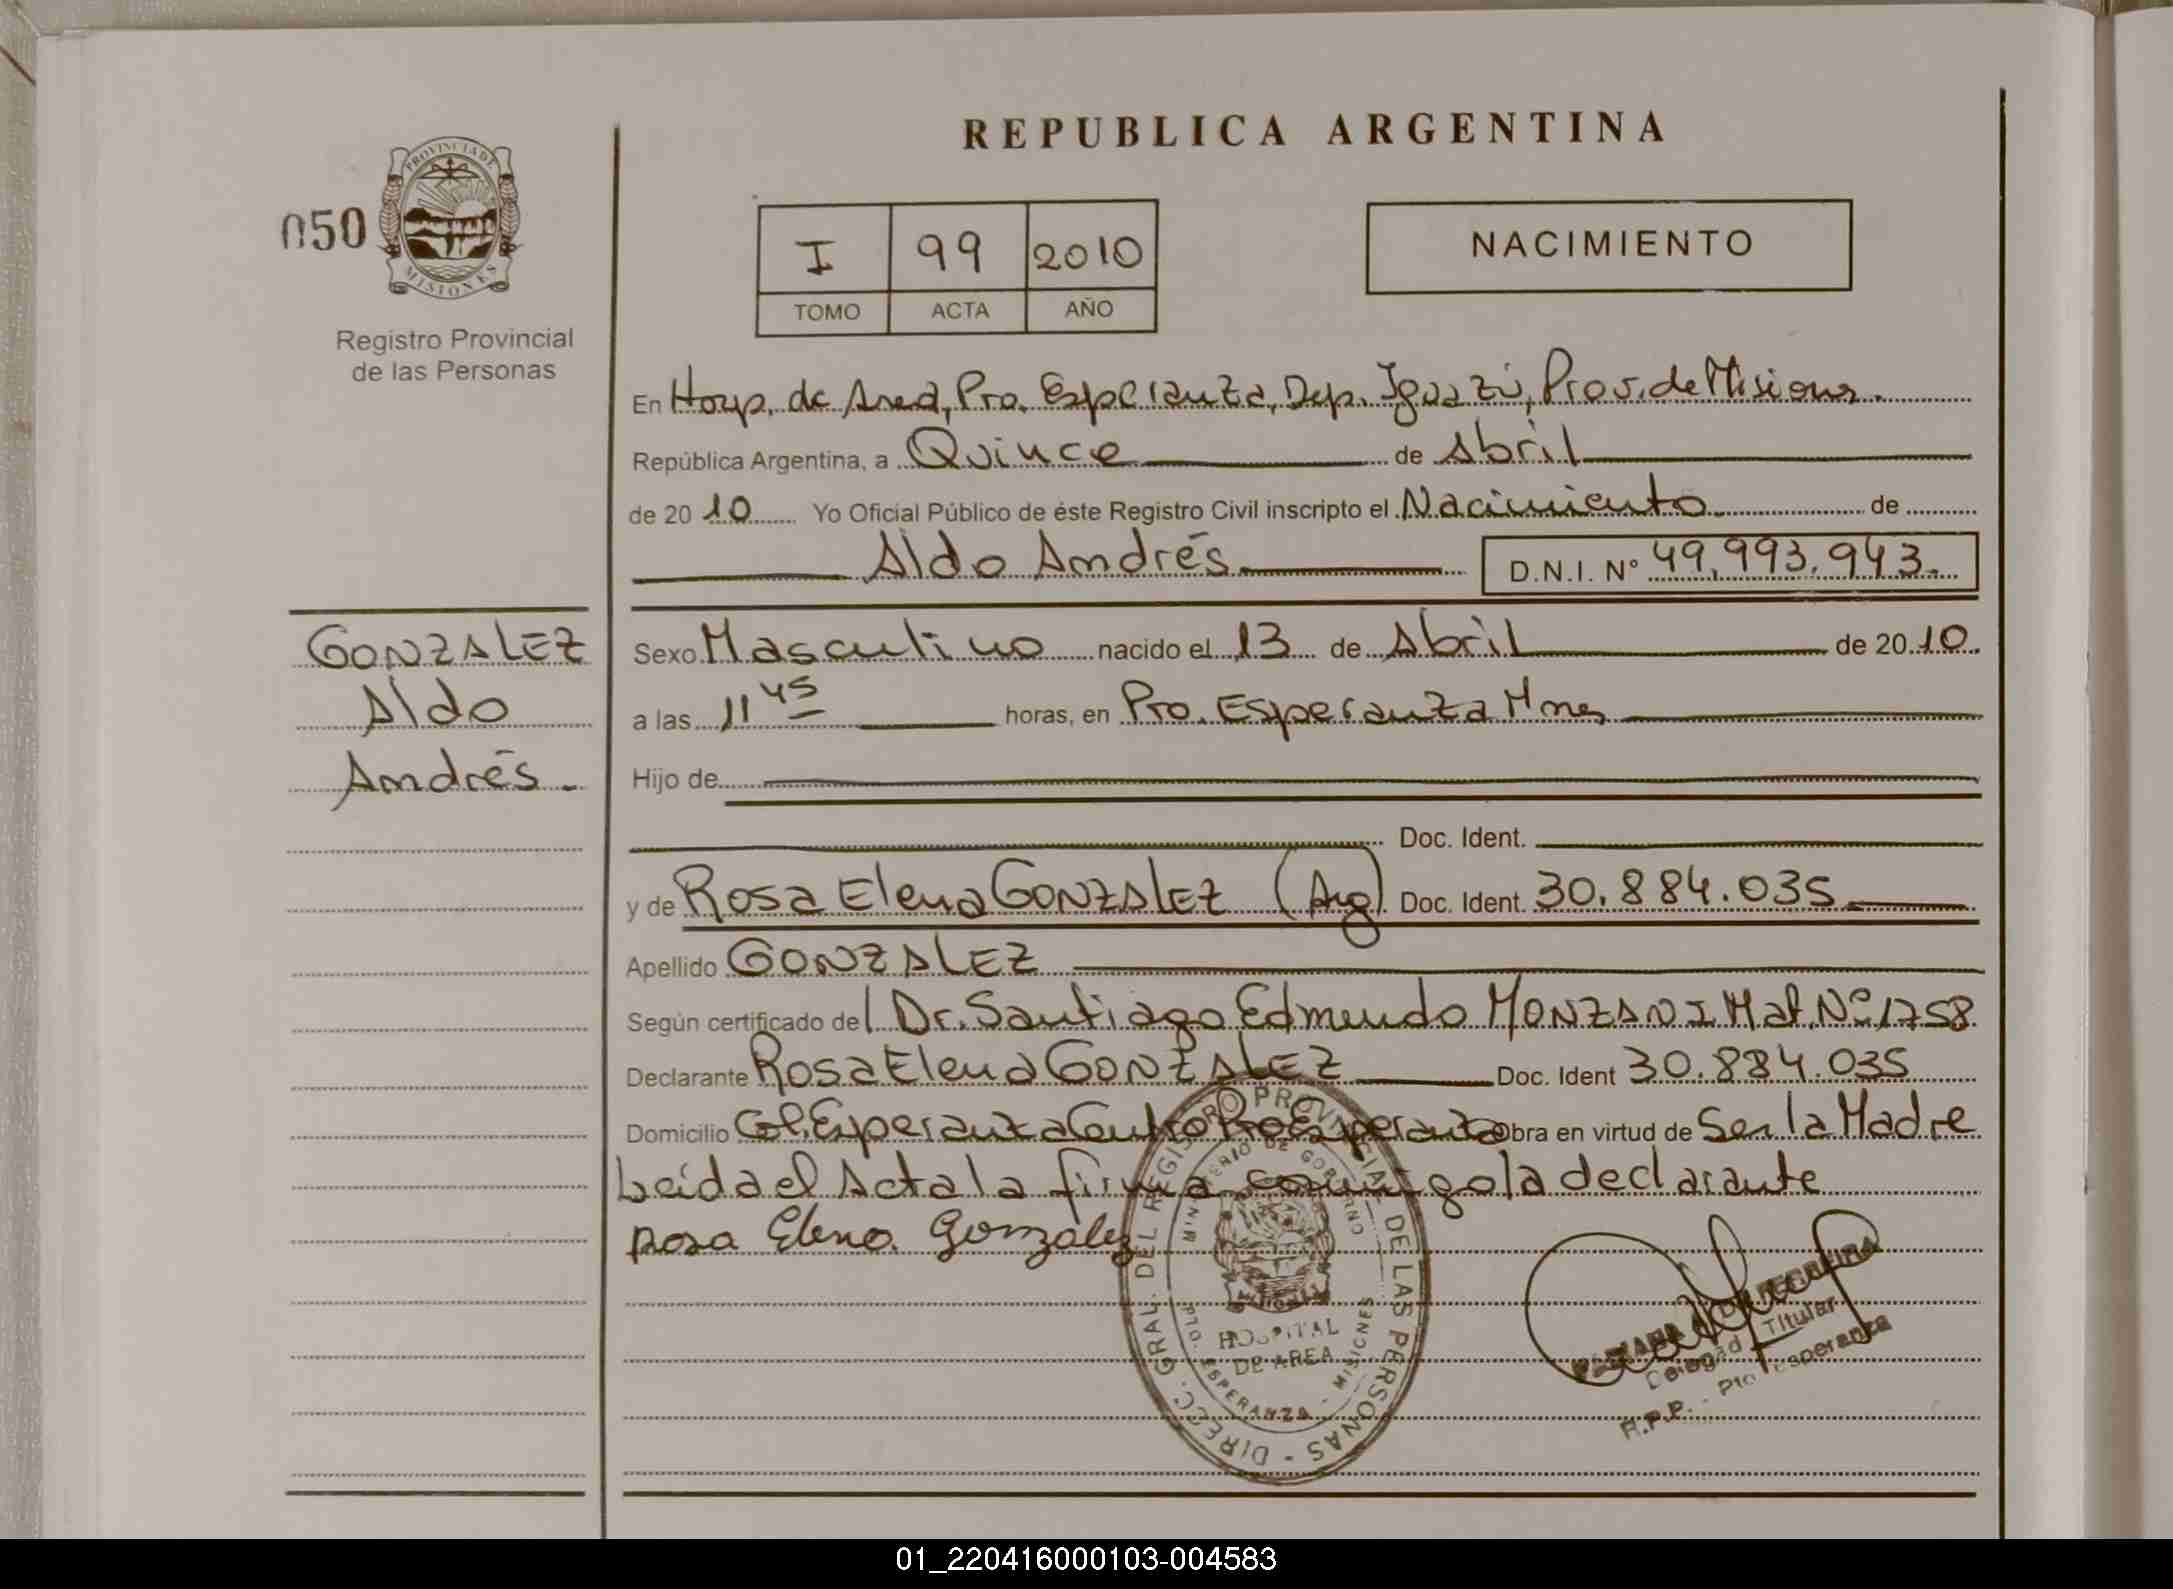 REPUBLICA ARGENTINA
050
PROVINCIA DE MISIONES
Registro Provincial
de las Personas
I 99 2010
TOMO ACTA AÑO
NACIMIENTO
En Hosp. de Area, Pto. Esperanza, Dep. Iguazú, Prov. de Misiones.
República Argentina, a Quince de Abril
de 2010 Yo Oficial Público de éste Registro Civil inscripto el Nacimiento de
Aldo Andrés D.N.I. N° 49.993.943.
GONZALEZ
Aldo
Andrés.
Sexo Masculino nacido el 13 de Abril de 2010.
a las 11 45 horas, en Pto. Esperanza Mnes
Hijo de
Doc. Ident.
y de Rosa Elena GONZALEZ (Arg) Doc. Ident. 30.884.035
Apellido GONZALEZ
Según certificado del Dr. Santiago Edmundo MONZANI Mat. N° 1758
Declarante Rosa Elena GONZALEZ Doc. Ident 30.884.035
Domicilio Esperanza Centro Pto Esperanza Obra en virtud de Ser la Madre
Leída el Acta la firma conmigo la declarante
Rosa Elena González
DIRECC. GRAL. DEL REGISTRO PROVINCIAL DE LAS PERSONAS
MINISTERIO DE GOBIERNO
HOSPITAL
DE AREA
PTO. ESPERANZA - MISIONES
Titular
R.P.P. - Pto Esperanza
01_220416000103-004583